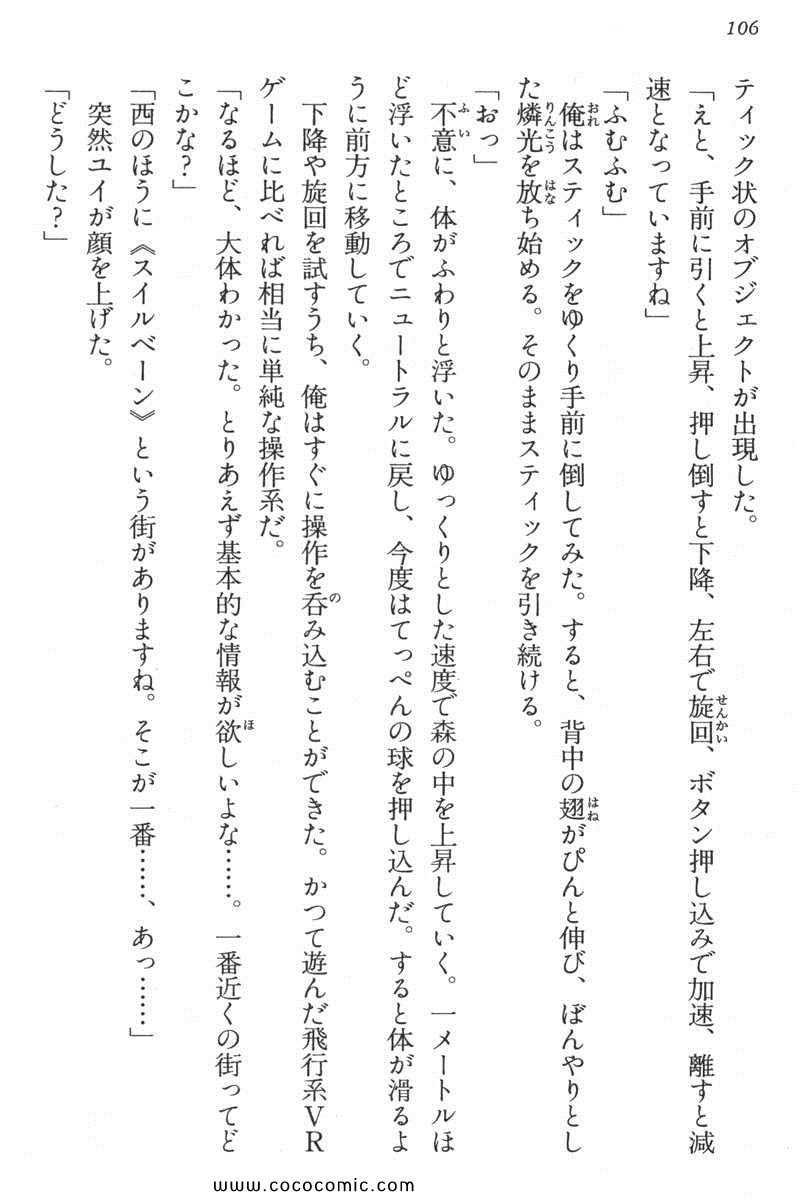 106
ティック状のオブジェクトが出現した。
「えと、手前に引くと上昇、押し倒すと下降、左右で旋回、ボタン押し込みで加速、離すと減
速となっていますね」
「ふむふむ」
俺はスティックをゆくり手前に倒してみた。すると、背中の翅がぴんと伸び、ぼんやりとし
た燐光を放ち始める。そのままスティックを引き続ける。
「おっ」
不意に、体がふわりと浮いた。ゆっくりとした速度で森の中を上昇していく。一メートルほ
ど浮いたところでニュートラルに戻し、今度はてっぺんの球を押し込んだ。すると体が滑るよ
うに前方に移動していく。
下降や旋回を試すうち、俺はすぐに操作を呑み込むことができた。かつて遊んだ飛行系ＶＲ
ゲームに比べれば相当に単純な操作系だ。
「なるほど、大体わかった。とりあえず基本的な情報が欲しいよな……。一番近くの街ってど
こかな？」
「西のほうに《スイルベーン》という街がありますね。そこが一番……、あっ……」
突然ユイが顔を上げた。
「どうした？」
www.cococomic.com/